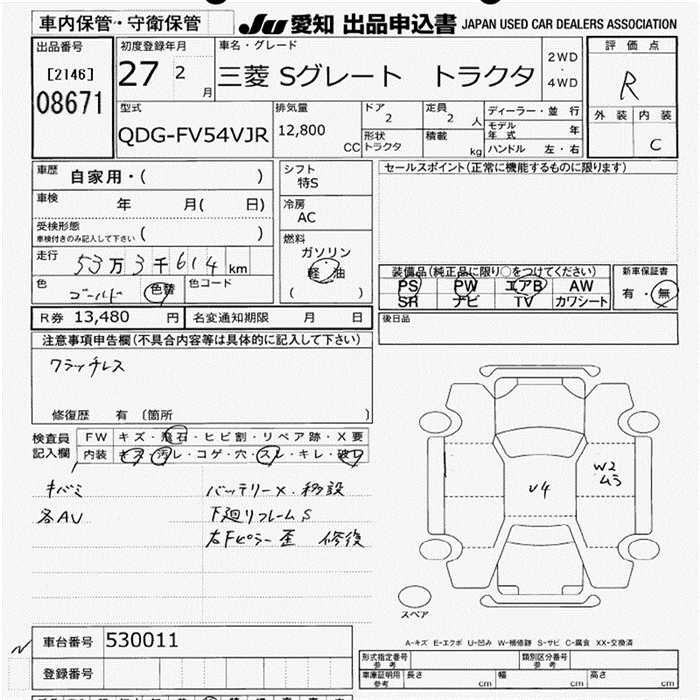 車内保管・守衛保管 JU 愛知 出品申込書 JAPAN USED CAR DEALERS ASSOCIATION
出品番号 初度登録年月 車名・グレード 評価点
[2146] 27 2月 三菱 Sグレート トラクタ 2WD・4WD R
08671
型式 排気量 ドア 定員 ディーラー・並行 外装 内装
QDG-FV54VJR 12,800CC 2 2人 モデル年式 年 C
形状 トラクタ 積載 kg ハンドル 左・右
車歴 自家用・( )
シフト 特S
セールスポイント(正常に機能するものに限ります)
車検 年 月( 日)
冷房 AC
受検形態 車検付きのみ記入して下さい ( )
燃料 ガソリン
軽油
( )
走行 53万3千614km
色 ゴールド 色替 色コード
装備品(純正品に限り○をつけてください) 新車保証書
PS PW エアB AW 有・無
SR ナビ TV カワシート
R券 13,480円 名変通知期限 月 日
後日品
注意事項申告欄(不具合内容等は具体的に記入して下さい)
クラッチレス
修復歴 有 〔箇所 〕
検査員記入欄 FW キズ・飛石・ヒビ割・リペア跡・X要
内装 キズ・汚レ・コゲ・穴・スレ・キレ・破レ
キバミ バッテリーX.移設
各AU 下廻リフレームS
右Fピラー歪 修復
U4
W2
ムラ
スペア
車台番号 530011
A-キズ E-エクボ U-凹み W-補修跡 S-サビ C-腐食 XX-交換済
登録番号
形式指定番号 参考 類別区分番号 参考
車庫証明用 参考 長さ cm 幅 cm 高さ cm